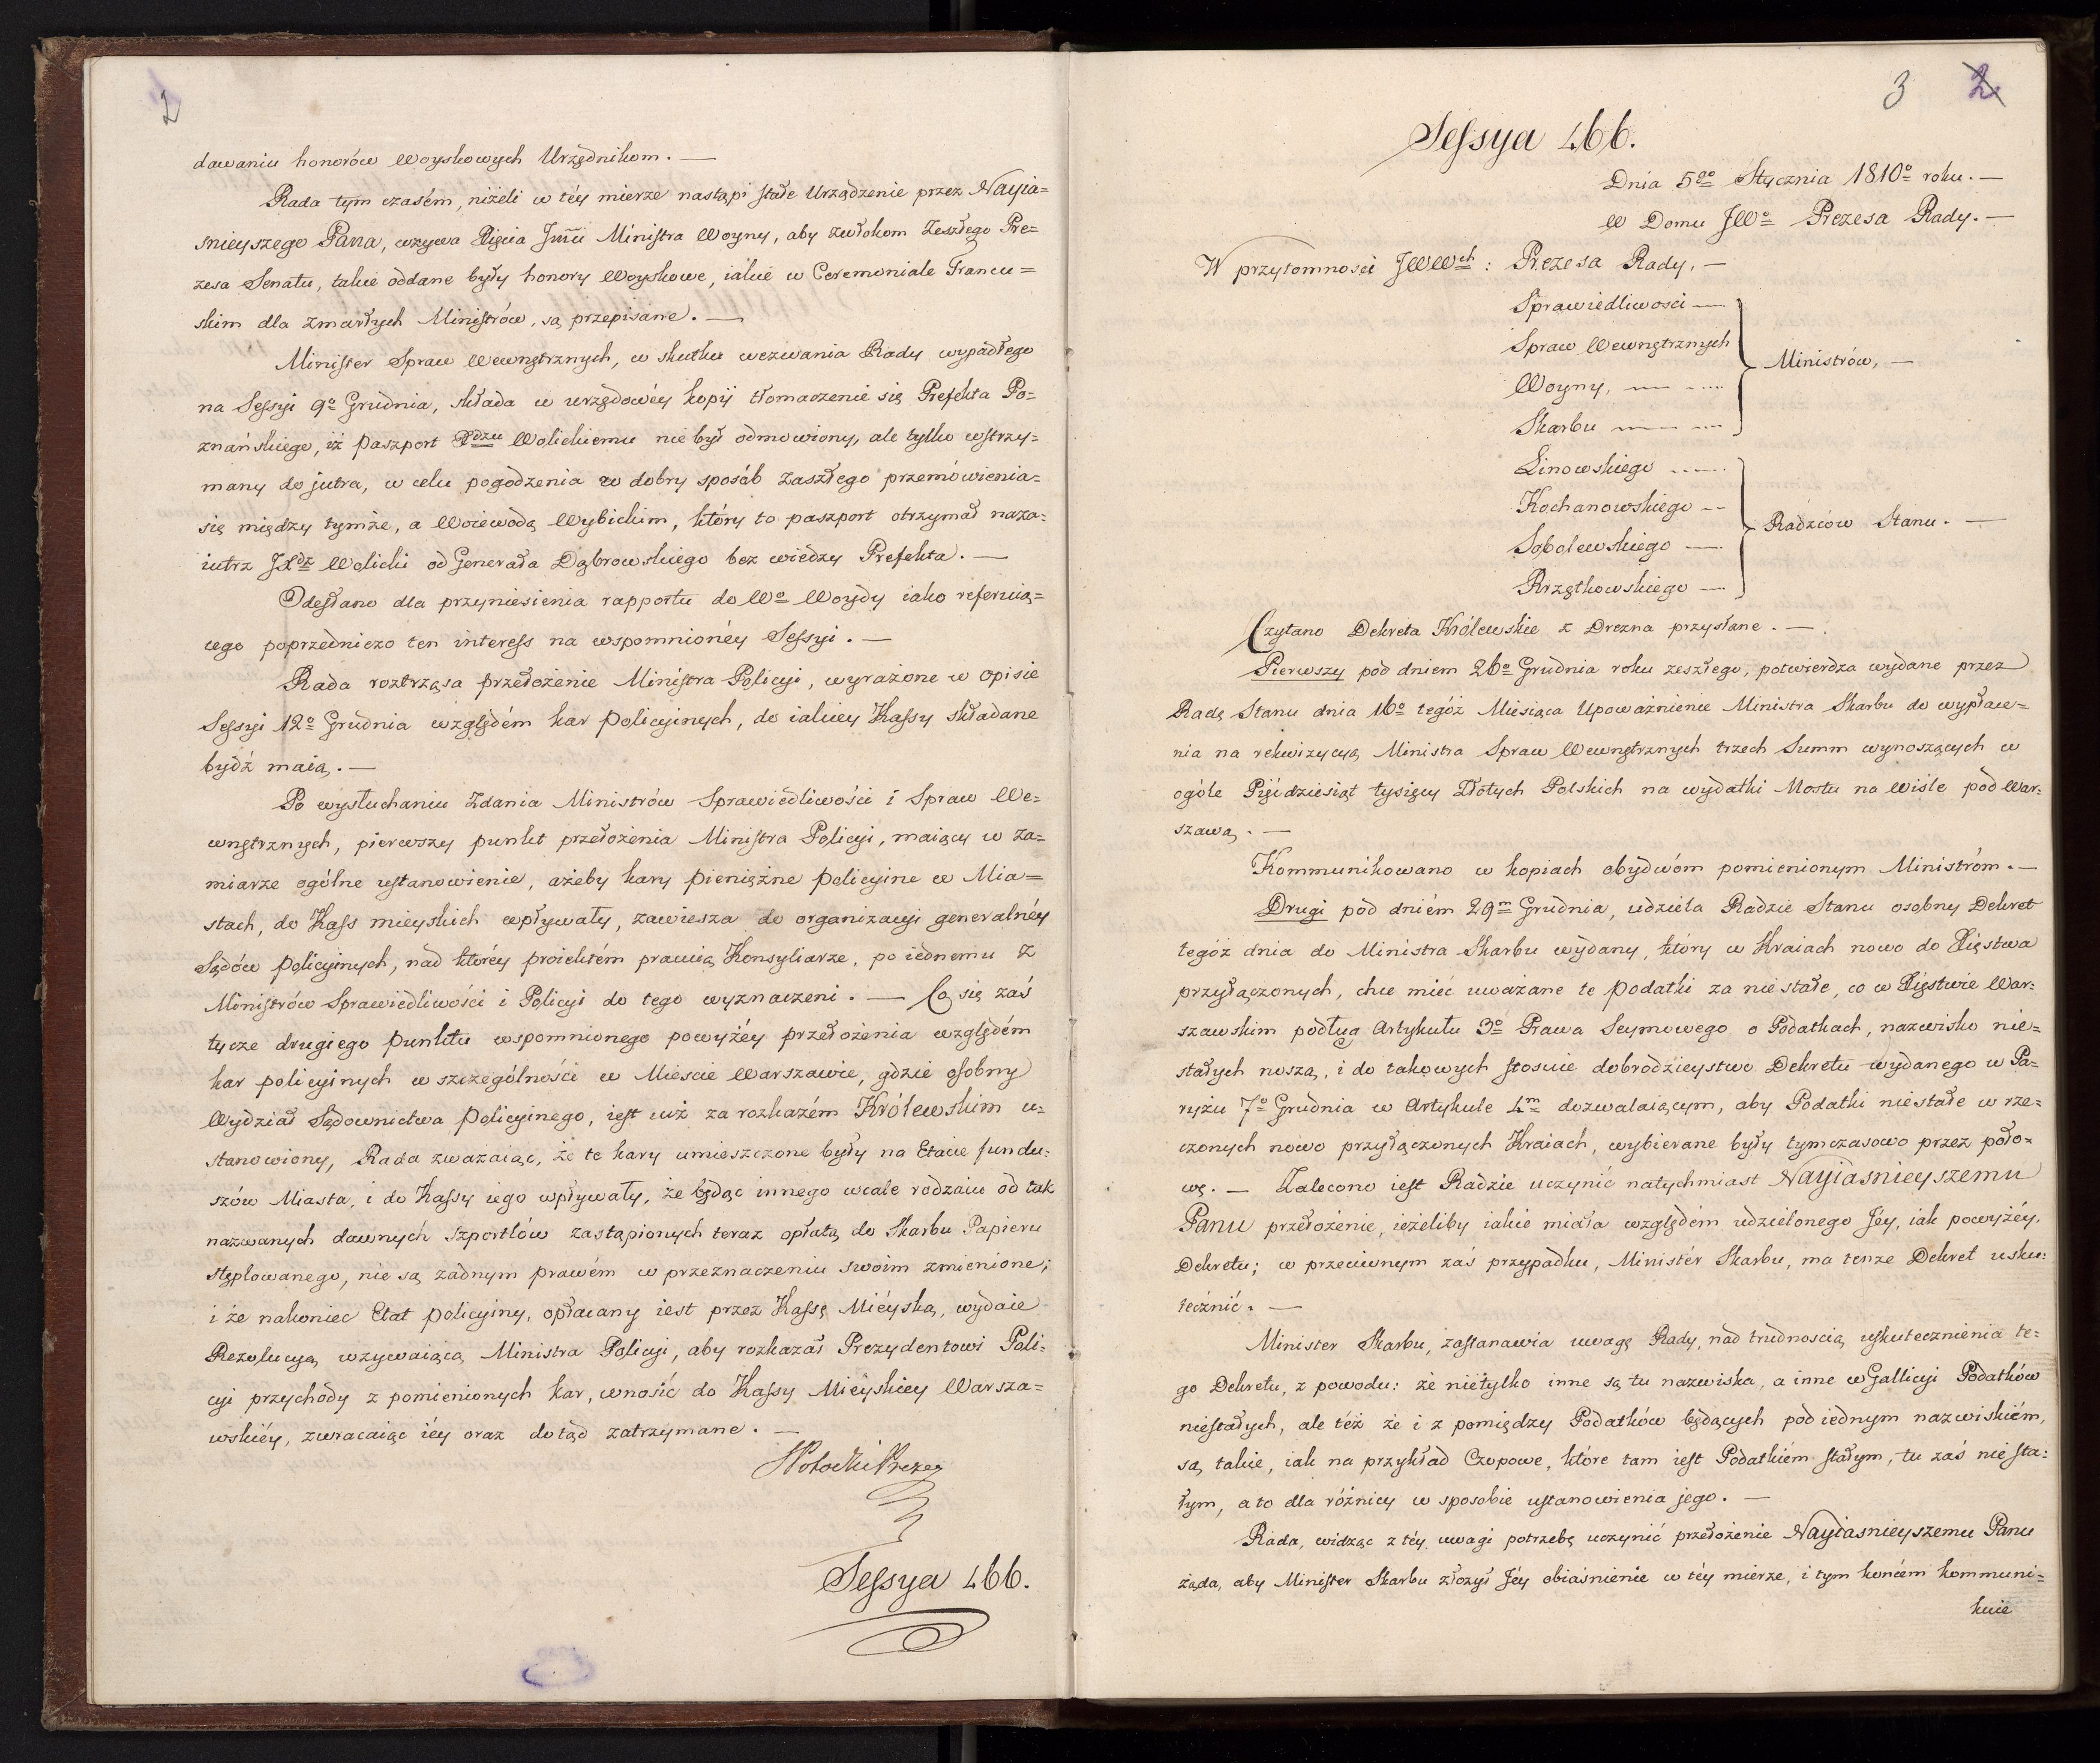 2
dawaniu honorów Woyskowych Urzędnikom. —
Rada tym czasém, niżeli w téy mierze nastąpi stałe Urządzenie przez Nayia=
śnieyszego Pana, wzywa Xięcia Jmći Ministra Woyny, aby zwłokom Zeszłego Pre=
zesa Senatu, takie oddane były honory Woyskowe, iakie w Ceremoniale Francu=
skim dla zmarłych Ministrów, są przepisane. —
Minister Spraw Wewnętrznych, w skutku wezwania Rady wypadłego
na Sessyi 9º Grudnia, składa w urzędowéy kopij tłomaczenie się Prefekta Po=
znańskiego, iż paszport Xdzu Wolickiemu nie był odmowiony, ale tylko wstrzy=
many do jutra, w celu pogodzenia w dobry sposób zaszłego przemówienia=
się między tymże, a Woiewodą Wybickim, który to paszport otrzymał naza=
iutrz JXdz Wolicki od Generała Dąbrowskiego bez wiedzy Prefekta. —
Odesłano dla przyniesienia rapportu do Wº Woydy iako referuią=
cego poprzedniczo ten interess na wspomnionéy Sessyi. —
Rada roztrząsa przełożenie Ministra Policyi, wyrażone w opisie
Sessyi 12º Grudnia względém kar policyinych, do iakiey Kassy składane
bydź maią. —
Po wysłuchaniu Zdania Ministrów Sprawiedliwości i Spraw We=
wnętrznych, pierwszy punkt przełożenia Ministra Policyi, maiący w za=
miarze ogólne ustanowienie, ażeby kary pieniężne policyine w Mia=
stach, do Kass mieyskich wpływały, zawiesza do organizacyi generalnéy
Sądów policyinych, nad któréy proiektém pracuią Konsyliarze, po iednemu z
Ministrów Sprawiedliwości i Policyi do tego wyznaczeni. — Co się zaś
tycze drugiego punktu wspomnionego powyżéy przełożenia względém
kar policyinych w szczególności w Mieście Warszawie, gdzie osobny
Wydział Sądownictwa policyinego, iest iuż za rozkazém Królewskim u=
stanowiony, Rada zważaiąc, że te kary umieszczone były na Etacie fundu=
szów Miasta, i do Kassy iego wpływały, że będąc innego wcale rodzaiu od tak
nazwanych dawnych szportlów zastąpionych teraz opłatą do Skarbu Papieru
stęplowanego, nie są żadnym prawém w przeznaczeniu swoim zmienione;
i że nakoniec Etat policyiny, opłacany iest przez Kassę Mieyską, wydaie
Rezolucyą wzywaiącą Ministra Policyi, aby rozkazał Prezydentowi Poli=
cyi przychody z pomienionych kar, wnosić do Kassy Mieyskiey Warsza=
wskiéy, zwracaiąc iéy oraz dotąd zatrzymane. —
Potocki Prezes
Sessya 466.
3 2
Sessya 466.
Dnia 5go Stycznia 1810º roku. —
W Domu JWº Prezesa Rady. —
W przytomności JWWch: Prezesa Rady, —
Sprawiedliwości —
Spraw Wewnętrznych
Ministrów, —
Woyny, —
Skarbu —
Linowskiego —
Kochanowskiego —
Radzców Stanu. —
Sobolewskiego —
Rrzętkowskiego —
Czytano Dekreta Królewskie z Drezna przysłane. —
Pierwszy pod dniem 26º Grudnia roku zeszłego, potwierdza wydane przez
Radę Stanu dnia 16º tegóż Miesiąca Upoważnienie Ministra Skarbu do wypłace=
nia na rekwizycyą Ministra Spraw Wewnętrznych trzech Summ wynoszących w
ogóle Pięćdziesiąt tysięcy Złotych Polskich na wydatki Mostu na Wiśle pod War=
szawą. —
Kommunikowano w kopiach obydwóm pomienionym Ministróm. —
Drugi pod dniém 29m Grudnia, udziela Radzie Stanu osobny Dekret
tegóż dnia do Ministra Skarbu wydany, który w Kraiach nowo do Xięstwa
przyłączonych, chce mieć uważane te podatki za niestałe, co w Xięstwie War=
szawskim podług Artykułu 3º Prawa Seymowego o Podatkach, nazwisko nie=
stałych noszą, i do takowych stosuie dobrodzieystwo Dekretu wydanego w Pa=
ryżu 7º Grudnia w Artykule 4m dozwalaiącym, aby Podatki niestałe w rze=
czonych nowo przyłączonych Kraiach, wybierane były tymczasowo przez poło=
wę. — Zalecono iest Radzie uczynić natychmiast Nayiaśnieyszemu
Panu przełożenie, ieżeliby iakie miała względém udzielonego Jéy, iak powyżéy,
Dekretu; w przeciwnym zaś przypadku, Ministér Skarbu, ma tenże Dekret usku=
tecznić. —
Minister Skarbu, zastanawia uwagę Rady, nad trudnością uskutecznienia te=
go Dekretu, z powodu: że nietylko inne są tu nazwiska, a inne w Gallicyi Podatków
niestałych, ale też że i z pomiędzy Podatków będących pod iednym nazwiskiém,
są takie, iak na przykład Czopowe, które tam iest Podatkiém stałym, tu zaś niesta=
łym, a to dla różnicy w sposobie ustanowienia jego. —
Rada, widząc z téy uwagi potrzebę uczynić przełożenie Nayiaśnieyszemu Panu
żąda, aby Minister Skarbu złożył Jéy obiaśnienie w téy mierze, i tym końcem kommuni=
kuie